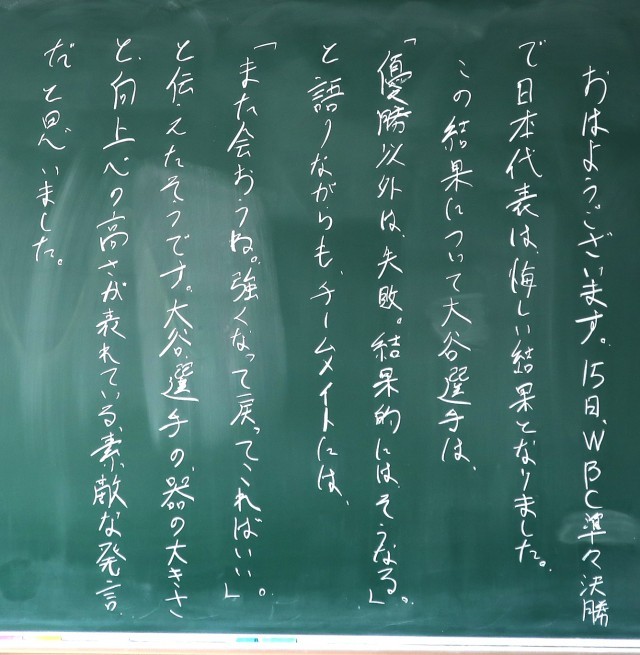 おはようございます。15日、WBC準々決勝
で日本代表は、悔しい結果となりました。
この結果について大谷選手は、
「優勝以外は、失敗。結果的にはそうなる。」
と語りながらも、チームメイトには、
「また会おうね。強くなって戻ってこればいい」。
と伝えたそうです。大谷選手の、器の大きさ
と、向上心の高さが表れている、素敵な発言
だと思いました。